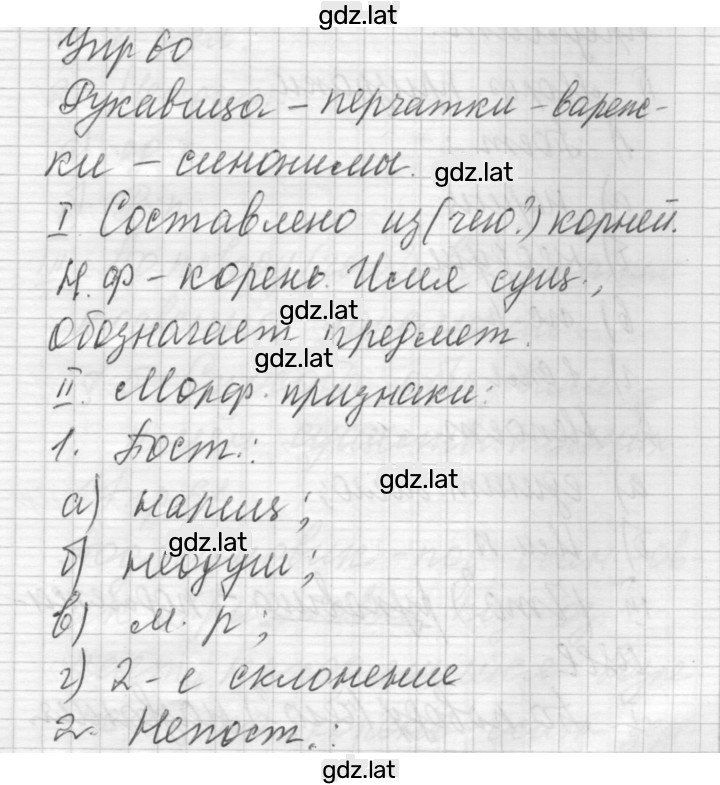 gdz.lat
Упр 60
Рукавица - перчатки - вареж-
ки - синонимы.
gdz.lat
I. Составлено из (чего?) корней.
Н. ф - корень. Имя сущ.,
gdz.lat
обозначает предмет.
gdz.lat
II. Морф. признаки:
1. Пост.:
gdz.lat
а) нариц;
gdz.lat
б) неодуш;
в) м. р;
г) 2-е склонение
2. Непост.:
gdz.lat